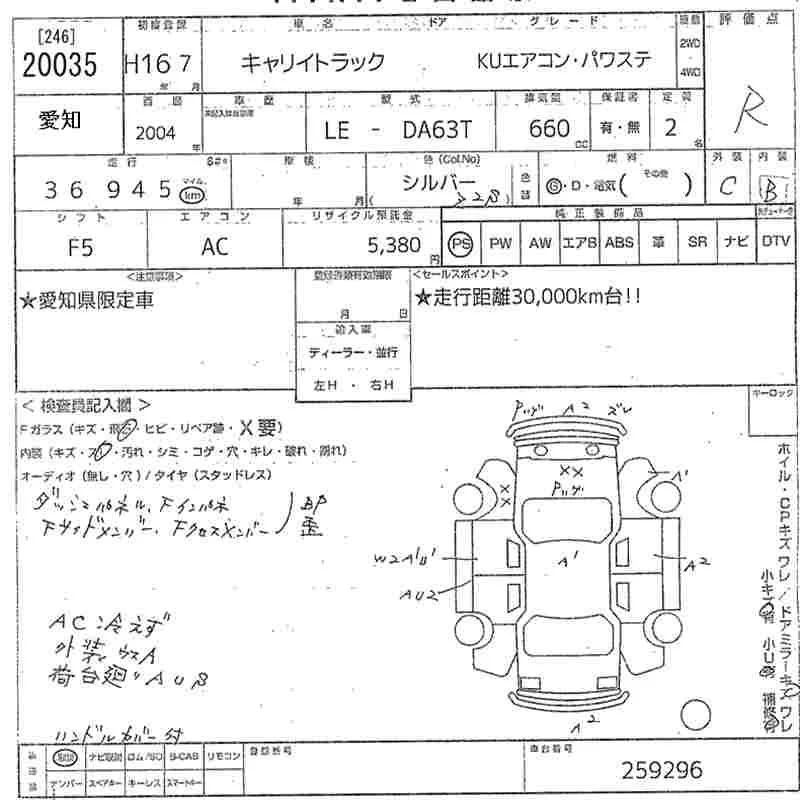 [246]
20035
初度登録
H16 7
年 月
車名 ドア グレード
キャリイトラック KUエアコン・パワステ
駆動
2WD
4WD
評価点
R
愛知
2004
年
車歴
型式
LE - DA63T
排気量
660
CC
保証書
有・無
定員
2
名
走行
36 945
マイル
km
車検
年 月
色(Col.No)
シルバー
色替
燃料
G・D・電気( その他 )
外装
C
内装
B
シフト
F5
エアコン
AC
リサイクル預託金
5,380
円
純正装備品
PS PW AW エアB ABS 革 SR ナビ DTV
<注意事項>
★愛知県限定車
月 日
輸入車
ディーラー・並行
左H・右H
<セールスポイント>
★走行距離30,000km台!!
<検査員記入欄>
Fガラス(キズ・飛石・ヒビ・リペア跡・X要)
内装(キズ・スレ・汚れ・シミ・コゲ・穴・キレ・破れ・割れ)
オーディオ(無し・穴)/タイヤ(スタッドレス)
ダッシュパネル、Fインパネ
Fサイドメンバー、Fクロスメンバー
BP
歪
AC冷えず
外装ウスA
荷台廻りAUB
ハンドルカバー付
A2 ズレ
XX
XX
A1
W2A'U'
A'
A2
AU2
A2
キーロック
ホイル・CPキズワレ/ドアミラーキズワレ
小キズ有 小U有 補修有
取説 ナビ取説 ロム/SD B-CAS リモコン
ナンバー スペアキー キーレス スマートキー
登録番号
車台番号
259296